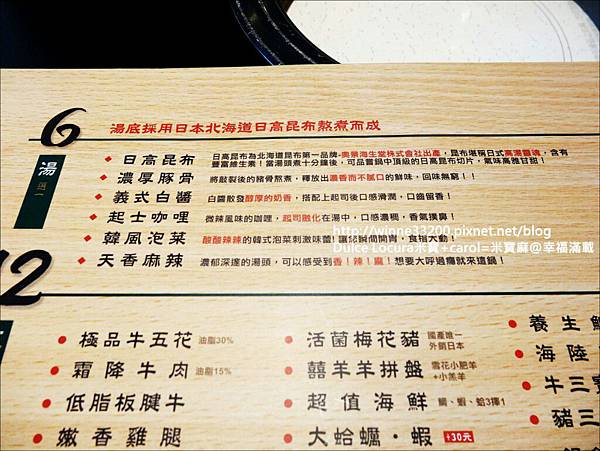 6
湯底採用日本北海道日高昆布熬煮而成
湯
選一
日高昆布 日高昆布為北海道昆布第一品牌-奧景海生堂株式會社出產，昆布堪稱日式高湯靈魂，含有
豐富維生素！當湯頭煮十分鐘後，可品嘗鍋中頂級的日高昆布切片，氣味高雅甘甜！
濃厚豚骨 將敲裂後的豬骨熬煮，釋放出濃香而不膩口的鮮味，回味無窮！！
義式白醬 白醬散發醇厚的奶香，搭配上起司後口感滑潤，口齒留香！
起士咖哩 微辣風味的咖哩，起司融化在湯中，口感濃稠，香氣撲鼻！
韓風泡菜 酸酸辣辣的韓式泡菜刺激味蕾！讓您瞬間開胃，食指大動！
天香麻辣 濃郁深邃的湯頭，可以感受到香！辣！麻！想要大呼過癮就來這鍋！
http://winne33200.pixnet.net/blog
Dulce Locura米寶+carol=米寶麻@幸福滿載
12
極品牛五花 油脂30%
霜降牛肉 油脂15%
低脂板腱牛
嫩香雞腿
活菌梅花豬 國產唯一
外銷日本
囍羊羊拼盤 雪花小肥羊
+小羔羊
超值海鮮 鯛、蝦、蛤3擇1
大蛤蠣·蝦 +30元
養生
海陸
牛三
豬三